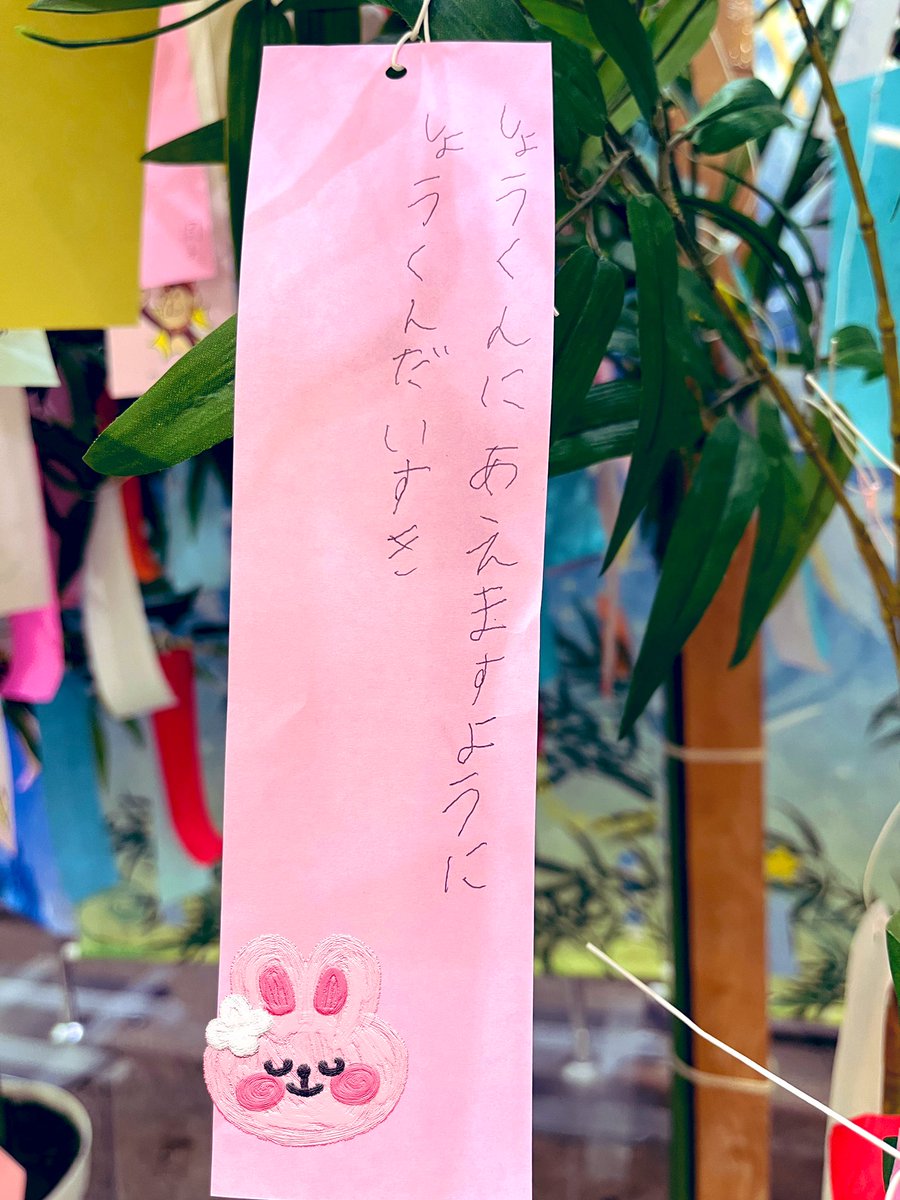 しょうくんに あえますように
しょうくんだいすき